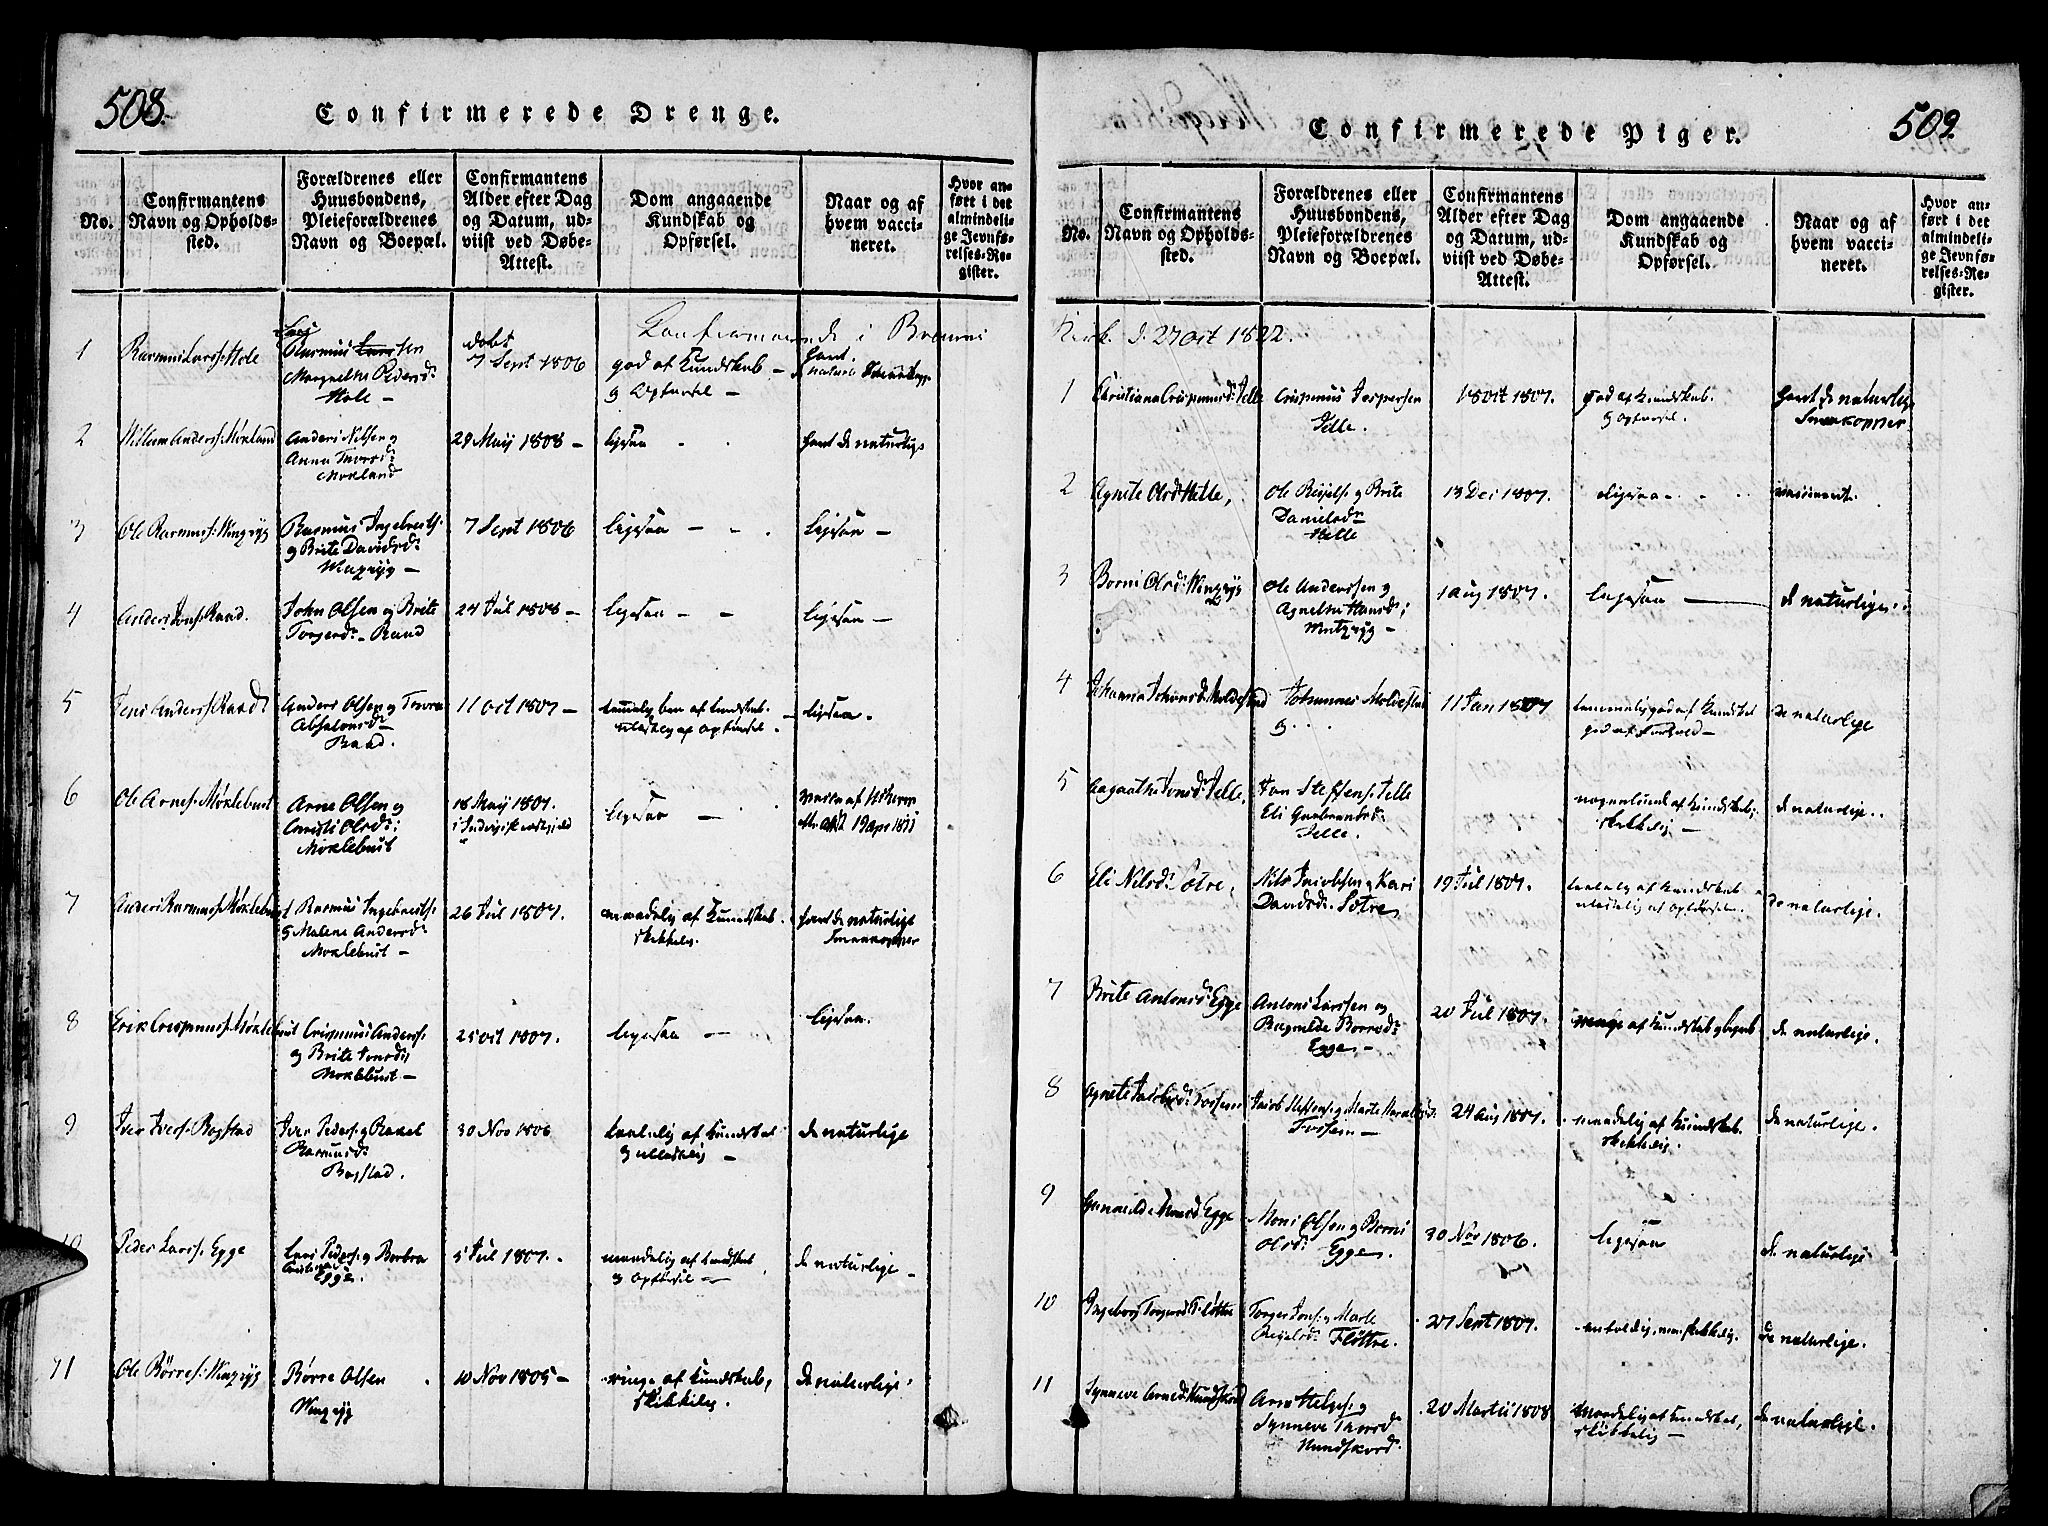 508.
Confirmerede Drenge.
No.
Confirmantens
Navn og Opholds-
sted.
Forældrenes eller
Huusbondens,
Pleieforældrenes
Navn og Boepæl.
Confirmantens
Alder efter Dag
og Datum, ud-
viist ved Døbe-
Attest.
Dom angaaende
Kundskab og
Opførsel.
Naar og af
hvem vacci-
neret.
Hvor an-
ført i det
almindeli-
ge Jevnfø-
relses-Re-
gister.
Confirmerede i Bremni
1
Rasmus Larss: Hole
Lars
Rasmussen
Margrethe Pedersd:
Hole -
døbt
7 Sept 1806
god af Kundskab -
og Opførsel -
havt
de naturl:
2
Willum Anderss: Moxland
Anders Nilsen og
Anna Thoresd:
Moxland
29 Maij 1808 -
ligesaa
havt de naturlige
3
Ole Rasmuss: Wingriig
Rasmus Ingebretts:
og Brite Davidsd:
Wingriig -
7 Sept 1806
ligesaa - -
ligesaa -
4
Anders Jons: Raad.
John Olsen og Brite
Torgersd: Raad
24 Jul 1808 -
ligesaa - -
ligesaa -
5
Jens Anderss: Raad
Anders Olsen og
Absalonsd:
Raad.
11 Oct 1807 -
temelig af Kundskab
ulastelig af Opførsel -
ligesaa.
6
Ole Arnes: Moxlebust
Arne Olsen og
Christi Olsd:
Moxlebust
18 Maij 1807.
ligesaa -
19 Apr 1811
7
Anders Rasmuss: Moxlebust
Rasmus Ingebretts:
og Malene Andersd:
Moxlebust -
26 Jul 1807.
maadelig af Kundskab
skikkelig.
havt de naturlige
Smaakopper
8
Erik Crispinuss: Moxlebust
Crispinus Anderss:
og Brite Jonsd:
Moxlebust -
25 oct 1807.
ligesaa -
ligesaa.
9
Iver Ivers: Bogstad
Iver Peders: og Rakel
Rasmusd:
Bogstad.
30 Nov 1806
taalelig af Kundskab
og ulastelig -
de naturlige
10
Peder Larss: Egge
Lars Peders: og Barbra
Egge.
5 Jul 1807.
maadelig af Kundskab
og Opførsel -
de naturlige -
11
Ole Børres: Wingriig
Børre Olsen
Wingriig
10 Nov 1805 -
ringe af Kundskab,
skikkelig.
de naturlige.
509.
Confirmerede Piger.
No.
Confirmantens
Navn og Opholds-
sted.
Forældrenes eller
Huusbondens,
Pleieforældrenes
Navn og Boepæl.
Confirmantens
Alder efter Dag
og Datum, ud-
viist ved Døbe-
Attest.
Dom angaaende
Kundskab og
Opførsel.
Naar og af
hvem vacci-
neret.
Hvor an-
ført i det
almindeli-
ge Jevnfø-
relses-Re-
gister.
Kirk. d. 27 Oct 1822.
1
Christiana Crispinusd: Selle
Crispinus Jespersen
Selle.
18 oct 1807.
god af Kundskab.
og Opførsel.
havt de naturlige
Smaakopper
2
Agnete Olsd: Helle,
Ole Reiels: og Brite
Danielsd:
Helle
13 Dec 1807.
ligesaa -
vaccineret.
3
Borni Olsd: Wingriig
Ole Anderssen og
Agnethe Hansd:
Wingriig -
1 Aug 1807.
ligesaa -
de naturlige.
4
Johanna Johansd: Moldestad
Johannes Moldestad
og . . .
11 Jan 1807
temmelig god af Kundskab
god af Forhold -
de naturlige
5
Aagaathe Jonsd: Selle.
Jon Steffens: Selle
Eli Gunbrandsd:
Selle.
nogenlunde af Kundskab,
skikkelig -
de naturlige.
6
Eli Nilsd: Sotre,
Nils Jacobsen og Kari
Davidsd: Sotre
19 Jul 1807.
taalelig af Kundskab
ulastelig af Opførsel.
de naturlige.
7
Brite Antonisd: Egge
Antoni Larssen og
Ragnilde Borresd:
Egge -
20 Jul 1807.
ringe af Kundskab
de naturlige.
8
Agnete Jacobsd: Fossem
Jacob Steffens: og Marte
Fossem -
24 Aug 1807.
maadelig af Kundskab.
skikkelig.
de naturlige.
9
Gunnilde Monsd: Egge
Mons Olsen og Borni
Olsd: Egge.
30 Nov 1806.
ligesaa
de naturlige
10
Ingeborg Torgersd: Fløttre
Torger Jons: og Marte
Reielsd: Fløttre.
27 Sept 1807.
enfoldig, men skikkelig.
de naturlige.
11
Synneve Arnesd: Hundskord
Arne Helges: og
Synneve Thoresd:
Hundskord.
20 Martii 1808
maadelig af Kundskab,
skikkelig -
de naturlige.